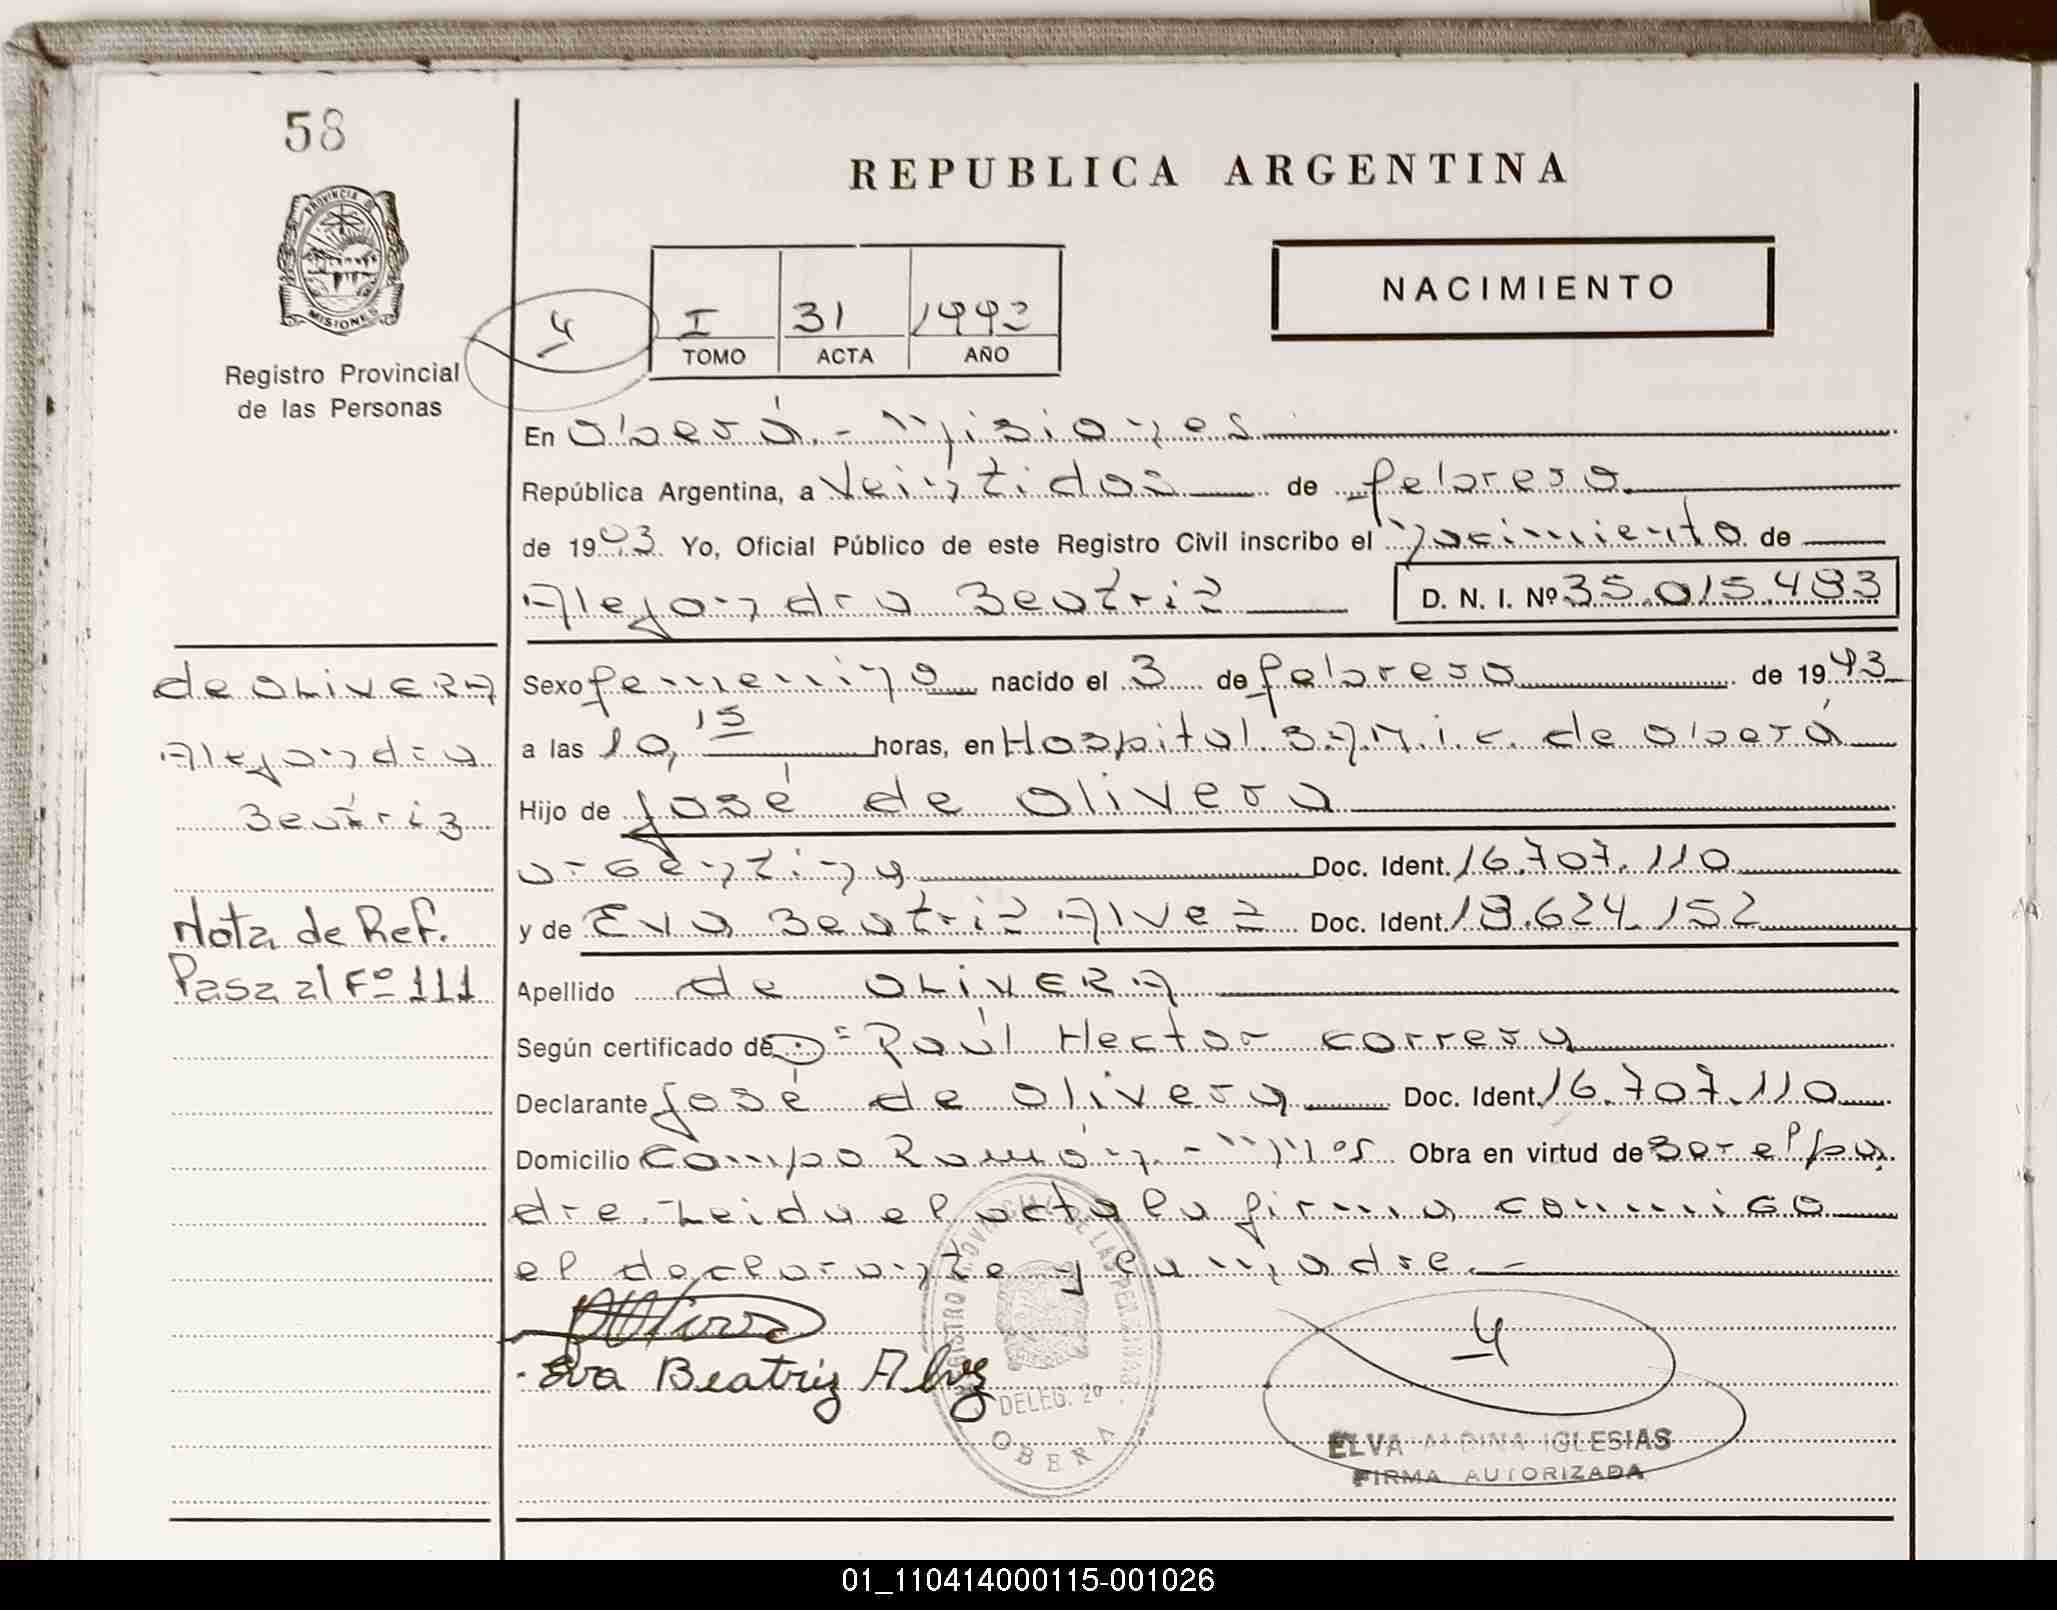 58
REPUBLICA ARGENTINA
PROVINCIA D MISIONES
NACIMIENTO
I 31 1993
TOMO ACTA AÑO
Registro Provincial
de las Personas
En Oberá - Misiones
República Argentina, a Veintidos de febrero
de 1993 Yo, Oficial Público de este Registro Civil inscribo el nacimiento de
Alejandra Beatriz D. N. I. Nº 35.015.483
de OLIVERA
Alejandra
Beatriz
Nota de Ref.
Pasa al Fº 111
Sexo femenino nacido el 3 de febrero de 1993
a las 10,15 horas, en Hospital S.A.M.i.c. de Oberá
Hijo de José de Olivera
argentina Doc. Ident. 16.707.110
y de Eva Beatriz Alvez Doc. Ident. 18.624.152
Apellido de OLIVERA
Según certificado de D= Raúl Hector Correra
Declarante José de Olivera Doc. Ident. 16.707.110
Domicilio Campo Ramón - Mnes Obra en virtud de ser el pa
dre. Leida el acta la firma conmigo
el declarante y la madre.-
Eva Beatriz Alvez
REGISTRO PROVINCIAL DE LAS PERSONAS
DELEG. 2º
OBERA
ELVA ALDINA IGLESIAS
FIRMA AUTORIZADA
01_110414000115-001026